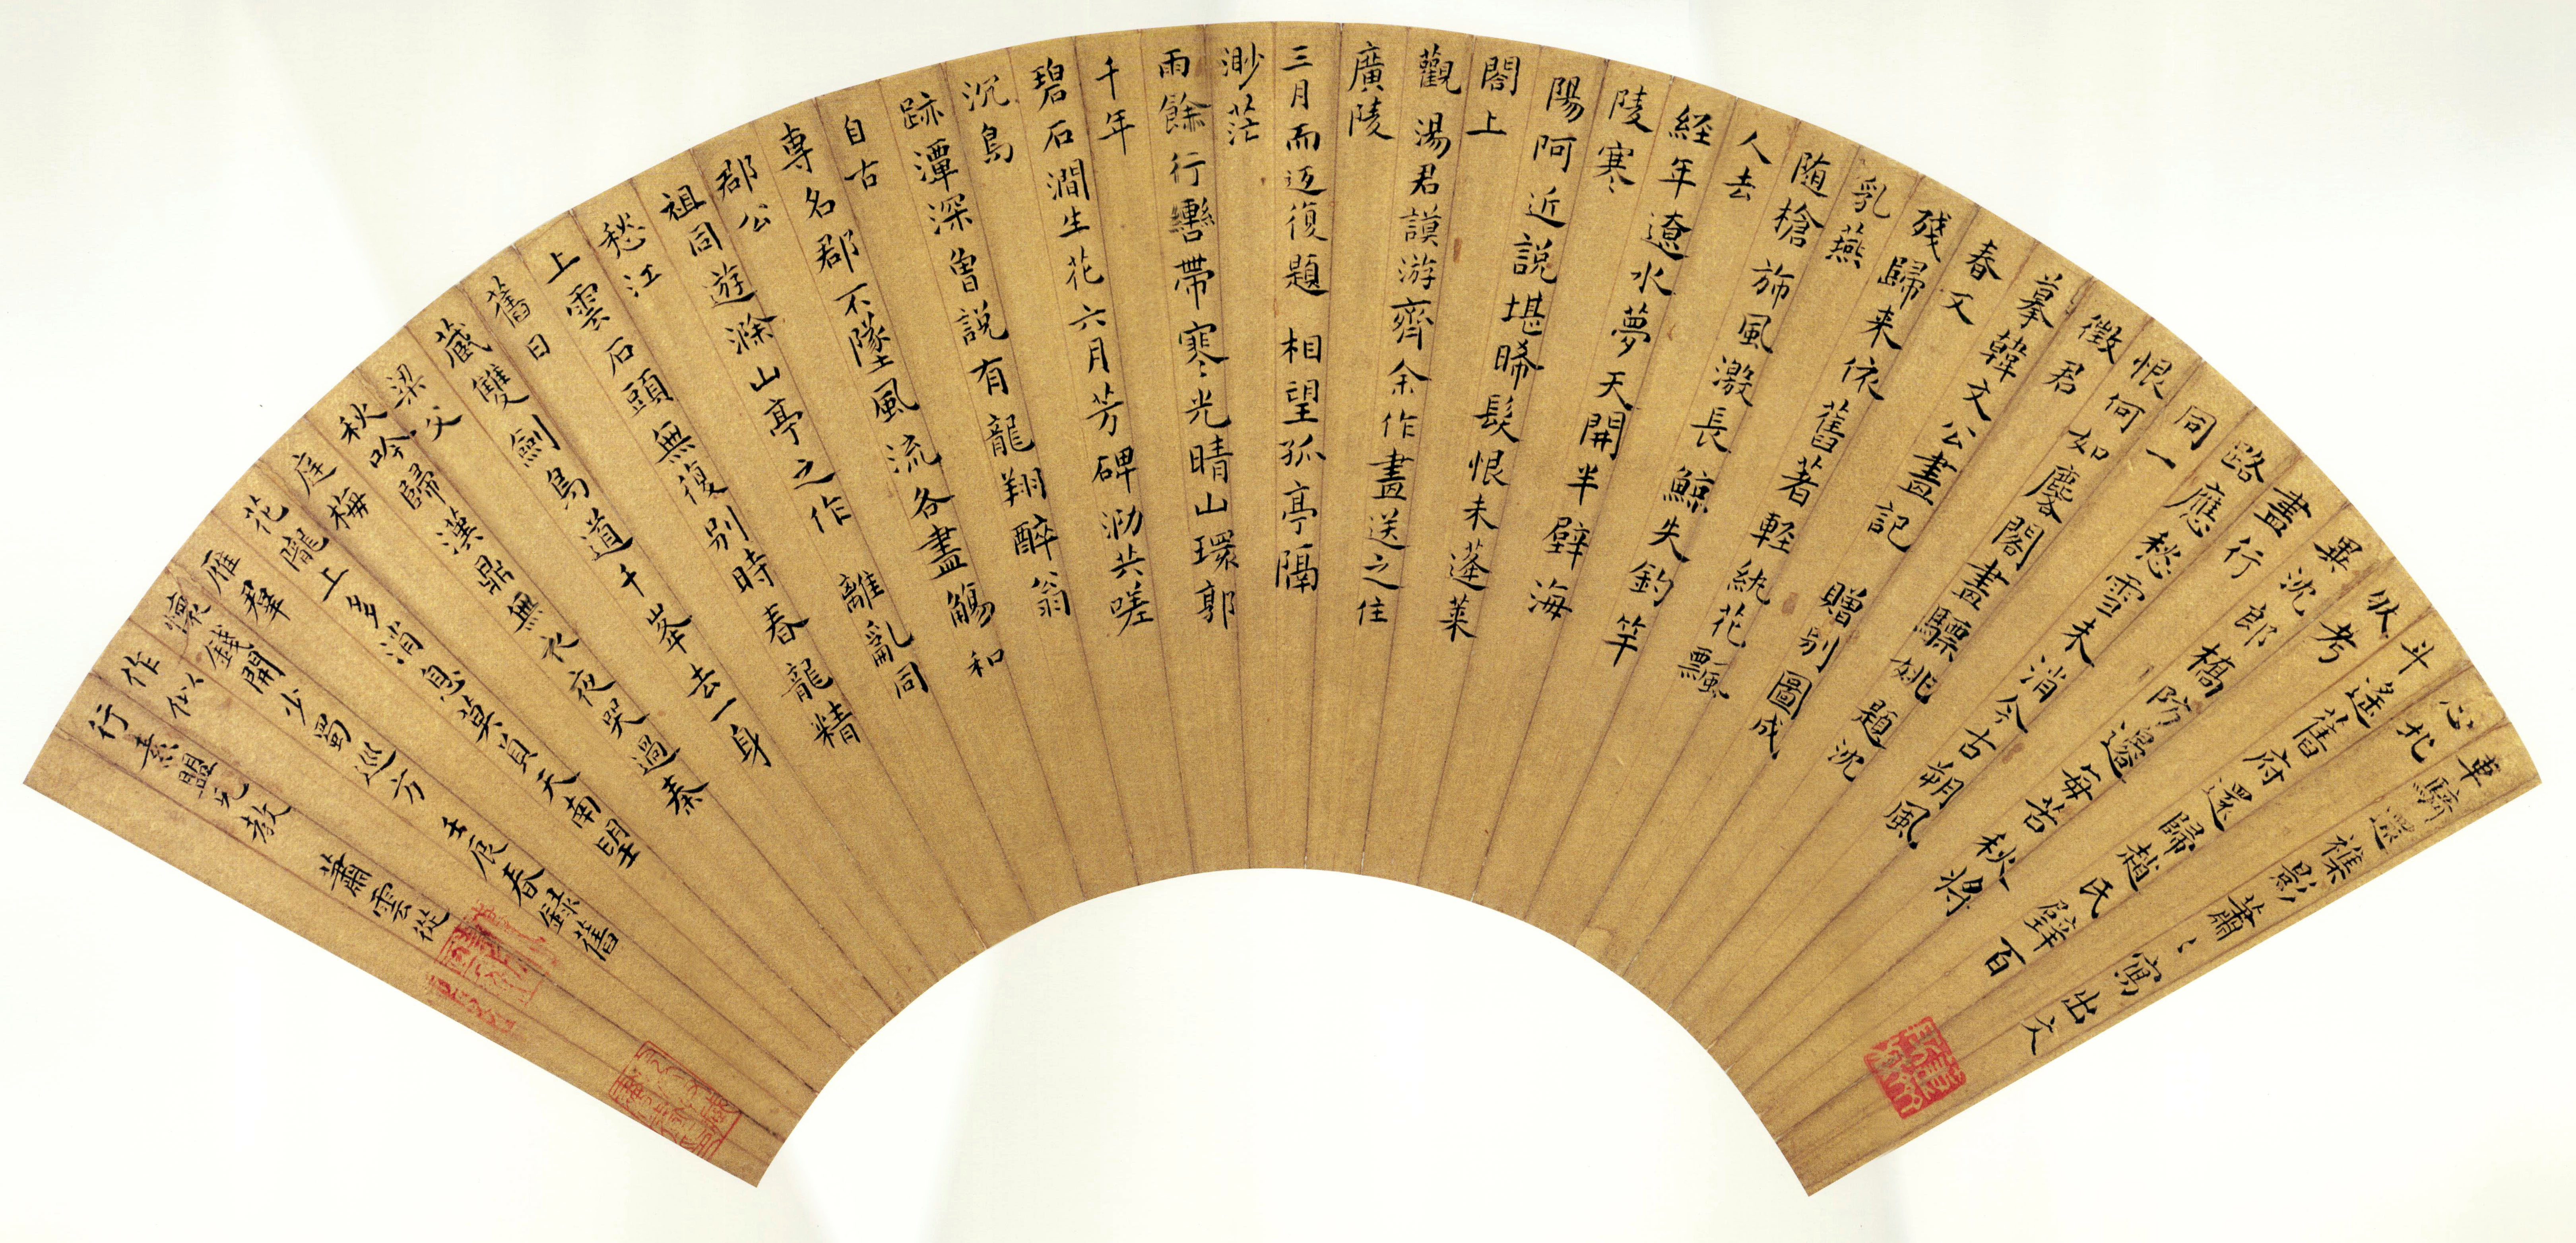 車騎還樵影蕭〻寫出文
心北
斗遙舊府還歸趙氏璧百
狀考
異沈郎橋防邊每苦秋將
盡行
路愁雪未消今古朔風
同一應
恨何如麐閣畫驃姚題沈
徵君
摹韓文公畫記 贈別圖成
春又
殘歸来依舊著輕紈花飄
乳燕
随檣旆風激長鯨失釣竿
人去
経年遼水夢天開半壁海
陵寒
陽阿近説堪晞髮恨未蓬萊
閣上
觀湯君謨游齊余作畫送之住
廣陵
三月而迈復題 相望孤亭隔
渺茫
雨餘行轡帶寒光晴山環郭
千年
碧石澗生花六月芳碑泐共嗟
沉鳥
跡潭深曾説有龍翔醉翁
自古
専名郡不墜風流各盡觴和
郡公
祖同遊滁山亭之作 離亂同
愁江
上雲石頭無復別時春龍精
舊日
藏雙劍鳥道千峯去一身
梁父
吟歸漢鼎無衣夜哭過秦
秋
庭梅隴上多消息莫負天南望
花
雁羣錢開少蜀巡方 壬辰春録舊
懷
作似
行素盟兄教 蕭雲從